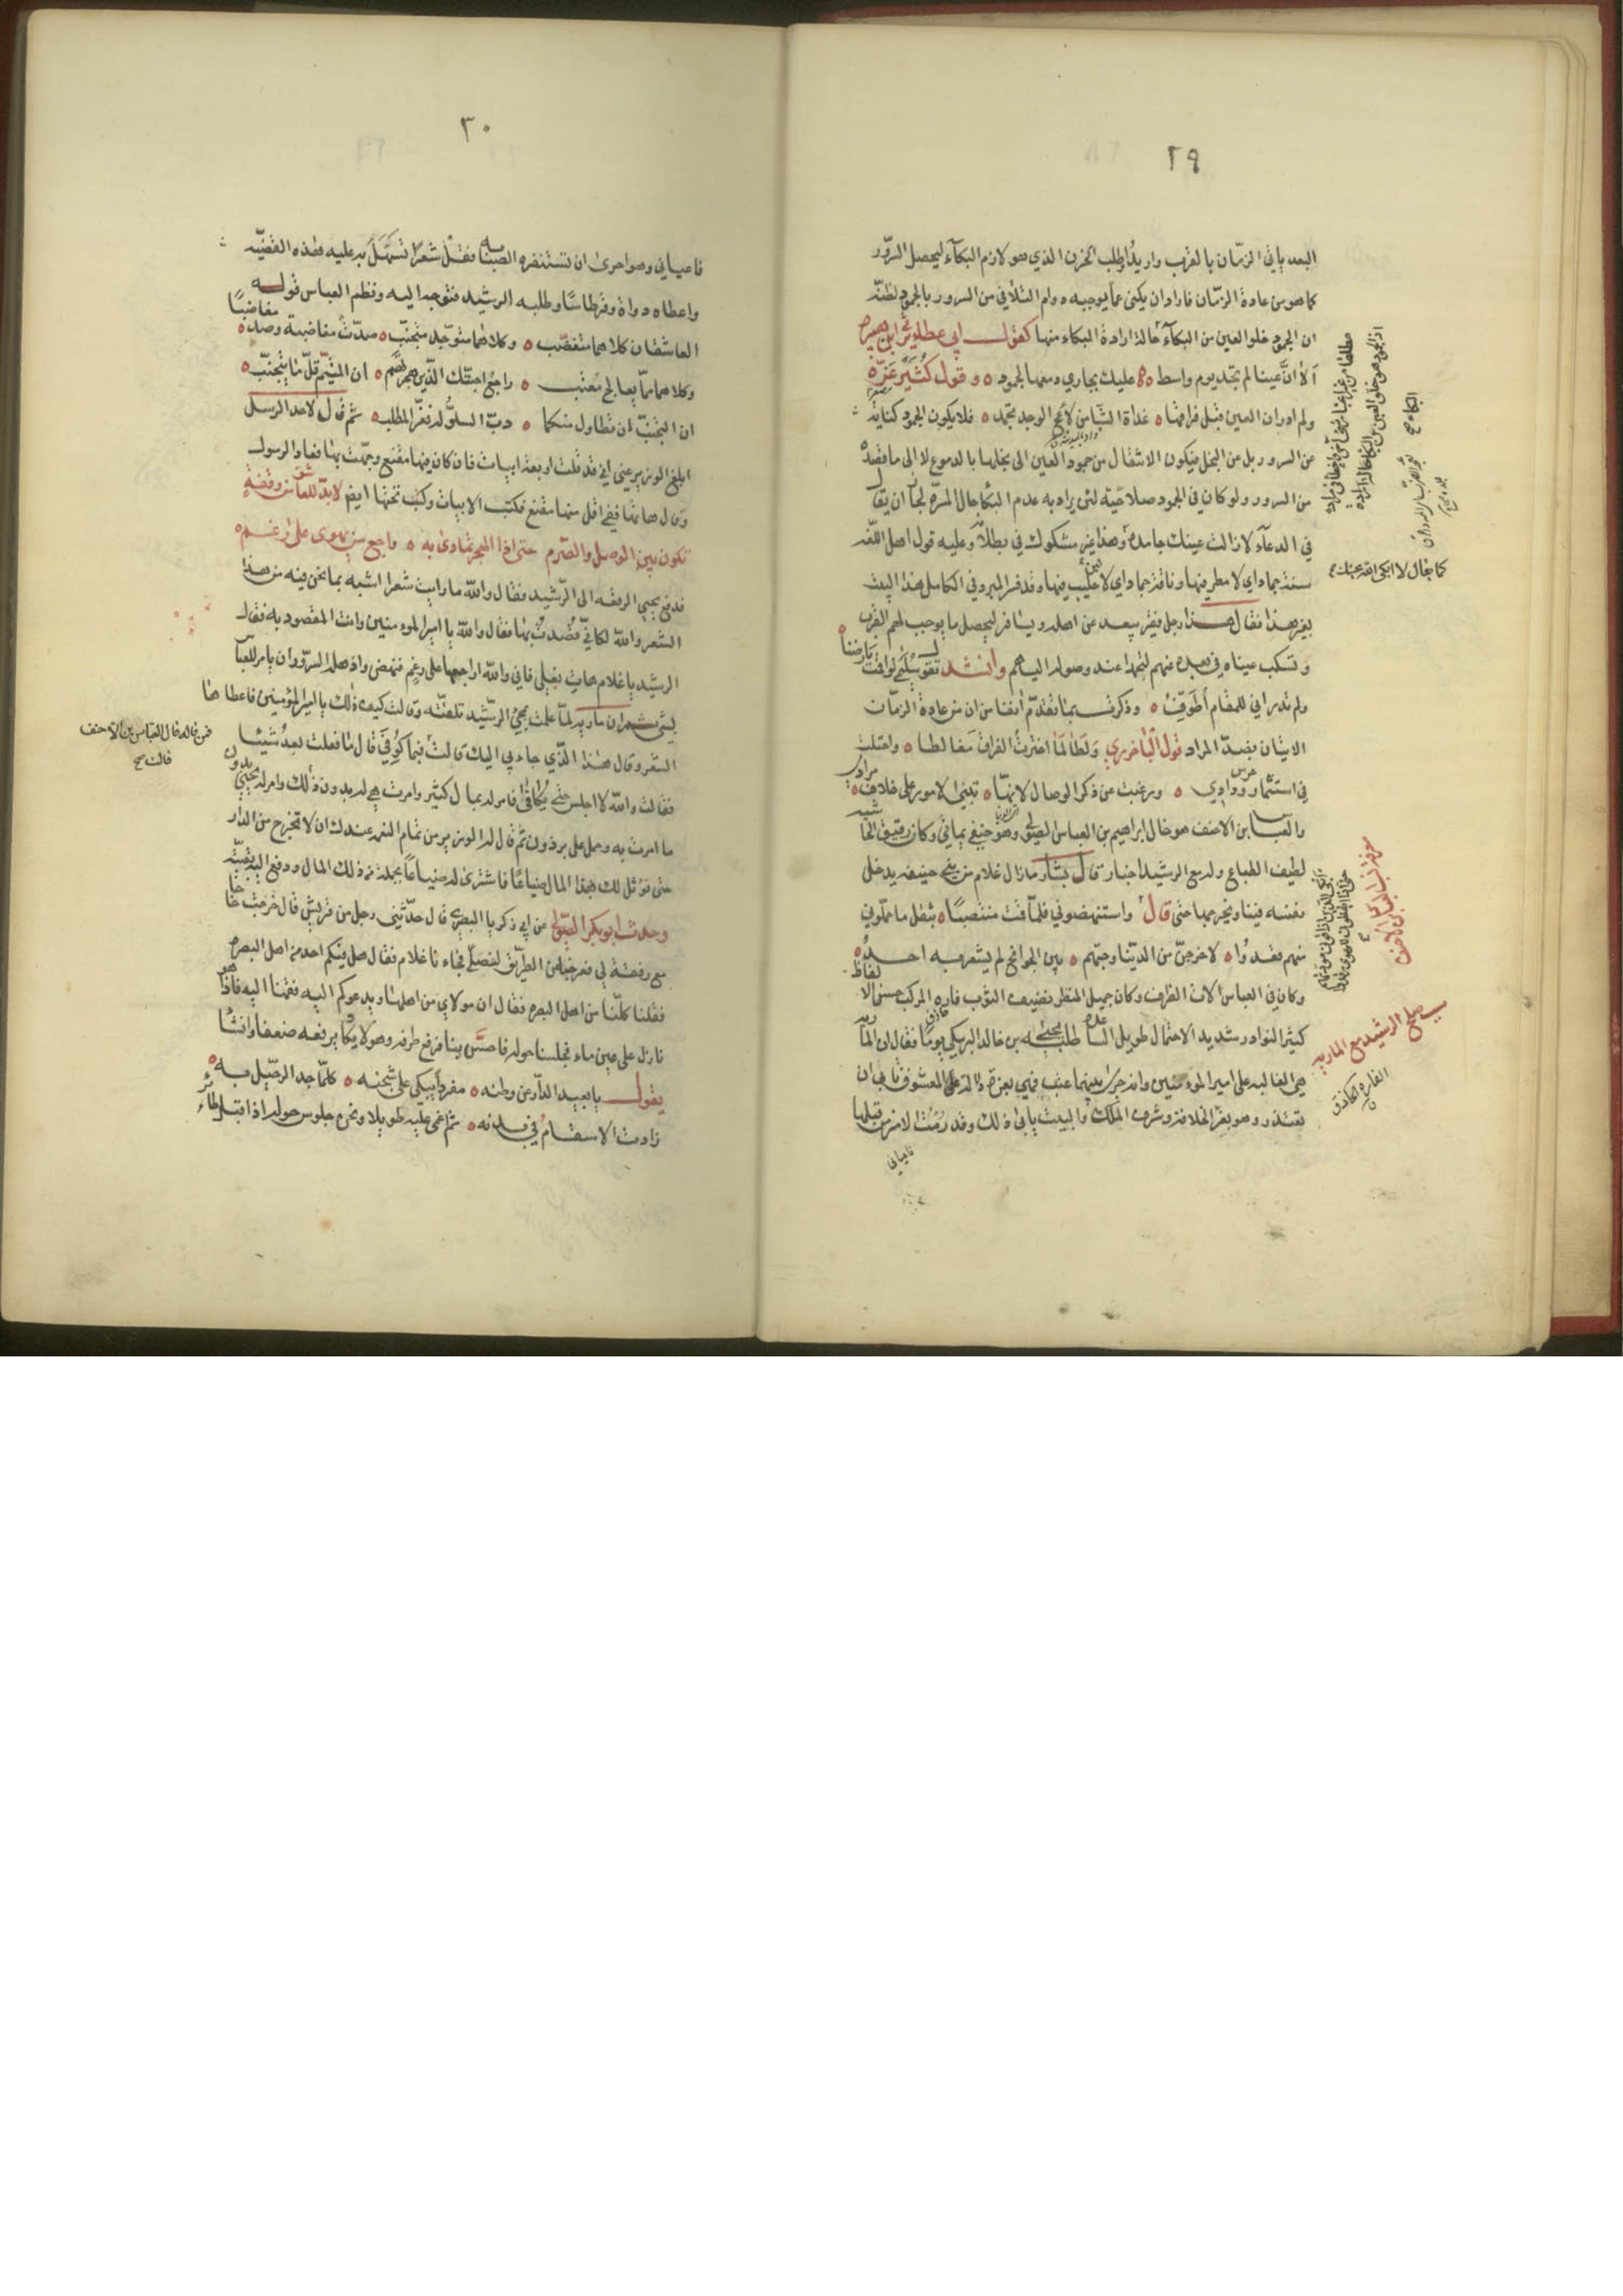 ٢٩
البعد ياتي الزمان بالقرب واريد اطلب الحزن الذي هو لازم البكاء ليحصل السرور
كما هو من عادة الزمان فاراد ان يكنى عما يوجبه دوام التلاقي من السرور بالجمود لظنه
ان الجمود خلو العين من البكاء حالة ارادة البكاء منها كقول ابي عطا يرثي ابن هبيرة
ألا ان عينا لم تجد يوم واسط ٥ عليك بجاري دمعها لجمود ٥ وقول كثير عزة
ولم ادر ان العين قبل فراقها ٥ غداة الشبا من لاعج الوجد تجمد ٥ فلا يكون الجمود كناية
عن السرور بل من البخل فيكون الانتقال من جمود العين الى بخلها بالدموع لا الى ما قصده
من السرور ولو كان في الجمود صلاحية لئن يراد به عدم البكا حال المسرة لجاز ان يقال
في الدعاء لا زالت عينك جامدة وهذا غير مشكوك في بطلانه وعليه قول اهل اللغة
سنة جماد اي لا مطر فيها وناقة جماد اي لا لبن فيها وقد فسر المبرد في الكامل هذا البيت
بغير هذا فقال هذا رجل فقير يبعد عن اهله ويسافر ليحصل ما يوجب لهم القرب
وتسكب عيناه في بعده عنهم لتجمدا عند وصوله اليهم وانشد تقول سليمى لو اقمت بارضنا ٥
ولم تدر اني للمقام أطوف ٥ وذكرت بما تقدم انفا من ان من عادة الزمان
الاتيان بضد المراد قول الباخرزي ولطالما اخترت الفراق مغالطا ٥ واحتلت
في استثمار غرس ودادي ٥ ورغبت عن ذكر الوصال لانها ٥ تبنى الامور على خلاف مرادي ٥
والعباس ابن الاحنف هو خال ابراهيم بن العباس الصولي وهو حنفي يماني وكان رقيق الحاشية
لطيف الطباع وله مع الرشيد اخبار قال بشار ما زال غلام من بني حنيفة يدخل
نفسه فينا ويخرجها حتى قال واستنهضوني فلما قمت منتصبا ٥ بثقل ما حملوني
منهم قعدوا ٥ لاخرجن من الدنيا وحبهم ٥ بين الجوانح لم يشعر به احد ٥
وكان في العباس الات الظرف وكان جميل المنظر نظيف الثوب فاره المركب حسن الالفاظ
كثير النوادر شديد الاحتمال طويل المساعدة طلبه يحيى بن خالد البرمكي يوما فقال ان مارية
هي الغالبة على امير المؤمنين وانه جرى بينهما عتب فهي بعزة دالة المعشوق تابى ان
تعتذر وهو بعز الخلافة وشرف الملك والبيت يابى ذلك وقد رمت الامر من قبلها
فاعياني
كما يقال لا ابكى الله عينك صح
صلح الرشيد مع المارية
٣٠
فاعياني وهو احرى ان تستنفره الصبابة فقل شعرا تسهل به عليه هذه القضية
واعطاه دواة وقرطاسا وطلبه الرشيد فتوجه اليه ونظم العباس قوله
العاشقان كلاهما متغضب ٥ وكلاهما متوجد متجنب ٥ صدت مغاضبة وصد مغاضبا ٥
وكلاهما مما يعالج متعب ٥ راجع احبتك الذين هجرتهم ٥ ان المتيم قل ما يتجنب ٥
ان التجنب ان تطاول منكما ٥ دب السلو له فعز المطلب ٥ ثم قال لاحد الرسل
ابلغ الوزير عني اني قد قلت اربعة ابيات فان كان فيها مقنع وجهت بها فعاد الرسول
وقال هاتها ففي اقل منها مقنع فكتب الابيات وكتب تحتها ايضا لابد للعاشق من وقفة
تكون بين الوصل والصرم حتى اذا الهجر تمادى به ٥ راجع من يهوى على رغم ٥
فدفع يحيى الرقعه الى الرشيد فقال والله ما رايت شعرا اشبه بما نحن فيه من هذا
الشعر والله لكاني قصدت بها فقال والله يا امير المؤمنين وانت المقصود به فقال
الرشيد يا غلام هات بغلي فاني والله اراجعها على رغم فنهض واذهله السرور ان يامر للعباس
بشئ ثم ان ماريه لما علمت بمجئ الرشيد تلقته وقالت كيف ذلك يا امير المؤمنين فاعطاها
الشعر وقال هذا الذي جاء بي اليك قالت فمن قاله قال العباس بن الاحنف قالت فبما كوفئ قال ما فعلت بعد شيئا
فقالت والله لا اجلس حتى يكافأ فامر له بمال كثير وامرت هي له بدون ذلك وامر له يحيى بدون
ما امرت به وحمل على برذون ثم قال له الوزير من تمام النعمة عندك ان لا تخرج من الدار
حتى نؤثل لك بهذا المال ضياعا فاشترى له ضياعا بجملة من ذلك المال ودفع اليه بقيته
وحدث ابو بكر الصولي عن ابي زكريا البصري قال حدثني رجل من قريش قال خرجت حاجا
مع رفقة لي فعرجنا عن الطريق لنصلي فجاءنا غلام فقال هل فيكم احد من اهل البصره
فقلنا كلنا من اهل البصره فقال ان مولاي من اهلها ويدعوكم اليه فقمنا اليه فاذا هو
نازل على عين ماء فجلسنا حوله فاحس بنا فرفع طرفه وهو لا يكاد يرفعه ضعفا وانشا
يقول يا بعيد الدار عن وطنه ٥ مفردا يبكي على شجنه ٥ كلما جد الرحيل به ٥
زادت الاسقام في بدنه ٥ ثم اغمى عليه طويلا ونحن جلوس حوله اذ اقبل طائر